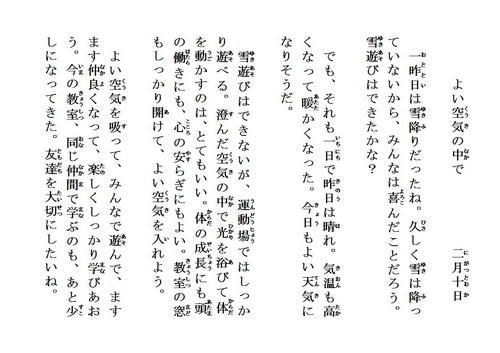 よい空気の中で　　　二月十日
一昨日は雪降りだったね。久しく雪は降っ
ていないから、みんなは喜んだことだろう。
雪遊びはできたかな？
でも、それも一日で昨日は晴れ。気温も高
くなって暖かくなった。今日もよい天気に
なりそうだ。
雪遊びはできないが、運動場ではしっか
り遊べる。澄んだ空気の中で光を浴びて体
を動かすのは、とてもいい。体の成長にも頭
の働きにも、心の安らぎにもよい。教室の窓
もしっかり開けて、よい空気を入れよう。
よい空気を吸って、みんなで遊んで、ます
ます仲良くなって、楽しくしっかり学びあお
う。今の教室、同じ仲間で学ぶのも、あと少
しになってきた。友達を大切にしたいね。